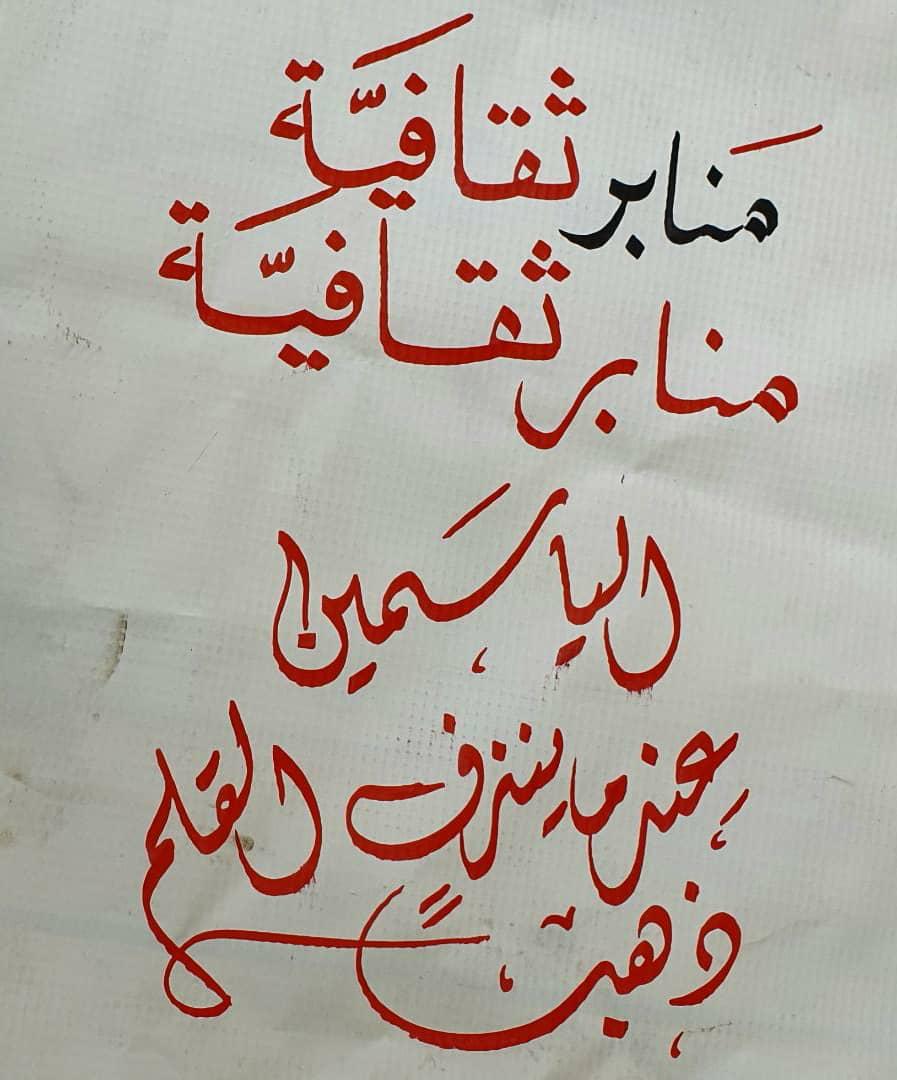 منابر ثقافيّة
منابر ثقافيّة
الياسمين
عندما ينزف القلم
ذهبًا